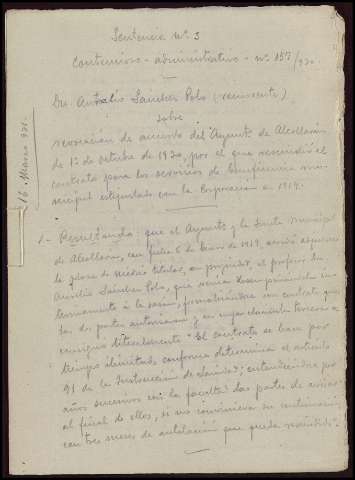 Sentencia nº 3
Contencioso-administrativo - nº 157/930.
Dn. Aurelio Sánchez Polo (recurrente)
sobre
revocación de acuerdo del Ayunt. de Alcollarín
de 1º de octubre de 1930, por el que rescindió el
contrato para los servicios de beneficencia mu-
nicipal estipulado con la Corporación en 1919.
16 - Marzo 931.
1.- Resultando: que el Ayunt. y la Junta municipal
de Alcollarín, con fecha 5 de Enero de 1919, acordó
la plaza de médico titular, en propiedad, al profesor Dn.
Aurelio Sánchez Polo, que venía desempeñándola in-
terinamente a la sazón, formalizándose con contrato que
las dos partes autorizaron y en cuya cláusula tercera se
consigna literalmente: "El contrato se hace por
tiempo ilimitado, conforme determina el artículo
91 de la Instrucción de Sanidad; entendiéndose por
años sucesivos con la facultad las partes de avisar
al final de ellos, si no conviniera su continuación
con tres meses de antelación que queda rescindido".